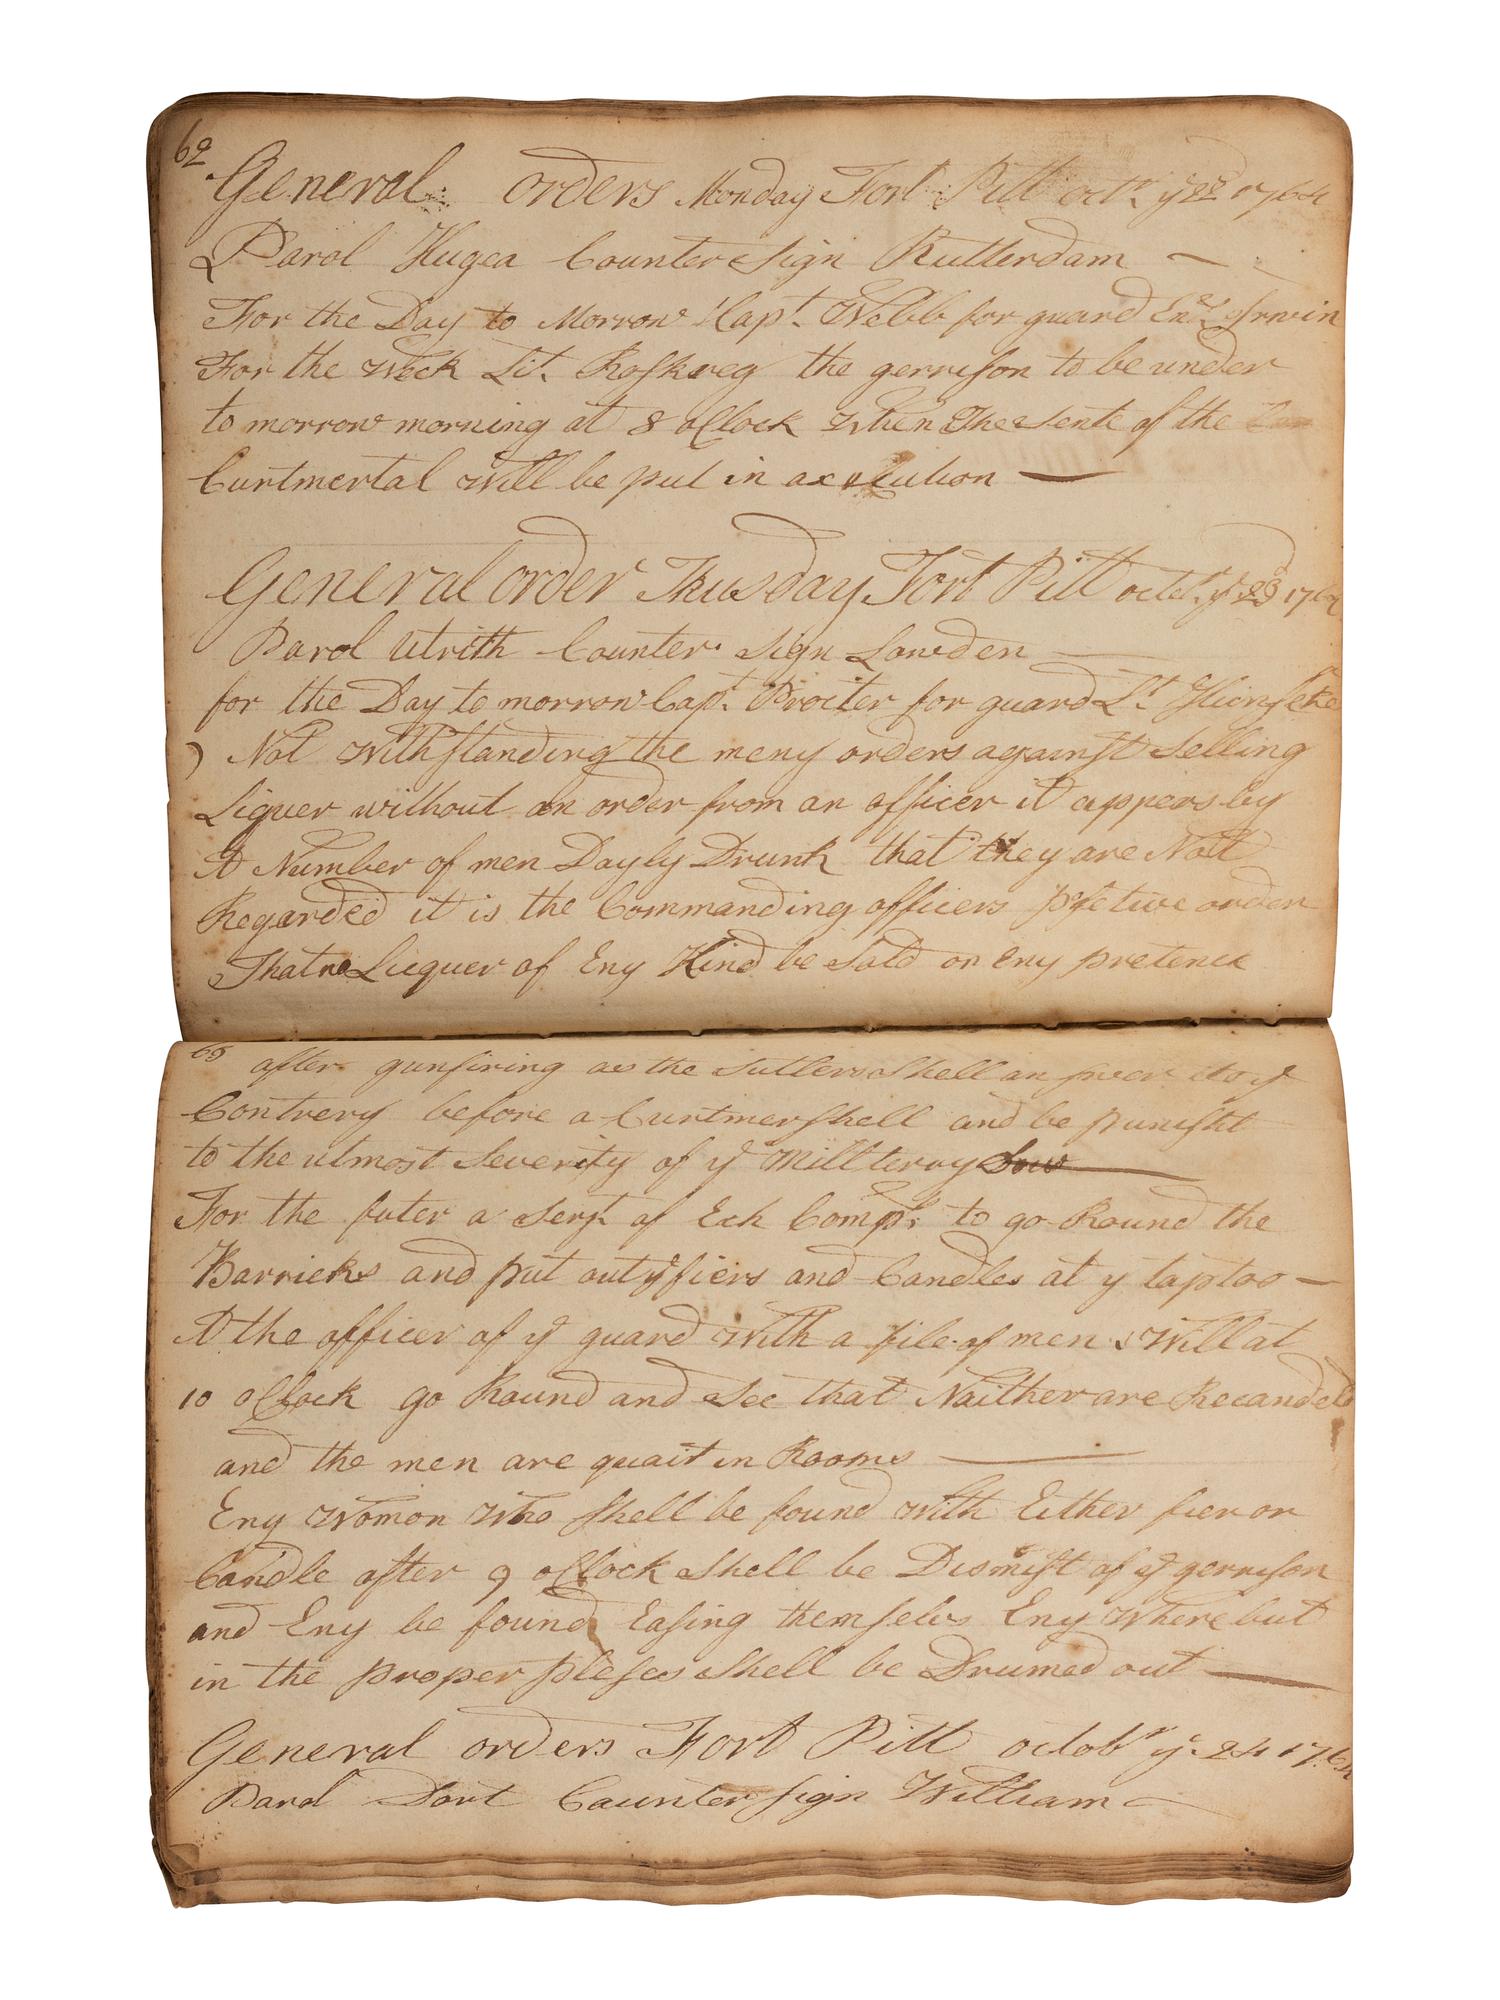 62
General orders Monday Fort Pitt octr ye 22d 1764
Parol Hugea Counter Sign Rutterdam
For the Day to Morrow Capt. Webb for guard Ens. Irwin
For the Week Lit. Roskreg the gerrison to be under
to morrow morning at 8 oClock When The Sente of the
Curtmertal will be put in axecution
General order Thusday Fort Pitt octbr. ye 23d 1764
Parol Utrith Counter Sign Lowden
for the Day to morrow Capt. Procter for guard Lt.
Not Withstanding the meny orders against Selling
Liquer without an order from an officer it appers by
A Number of men Dayly Drunk that they are Nott
Regarded it is the Commanding officers order
That no Licquer of Eny Kind be Sold on Eny pretence
63 after gunfiring as the Sutlers Shell to ye
Contrery before a Curtmershell and be punisht
to the utmost Severity of ye Millteray Low
For the futer a Serjt of Ech Compy. to go Round the
Barricks and put out ye fiers and Candles at ye taptoo
A the officer of ye guard With a file of men Will at
10 oClock go Round and See that Naither are
and the men are quait in Rooms
Eny Womon Who Shell be found With Either fier or
Candle after 9 oClock Shell be Dismist of ye gerrison
and Eny be found Easing themselvs Eny Where but
in the proper pleses Shell be Drumed out
General orders Fort Pitt octobr ye 24 1764
Parol Dort Counter Sign William